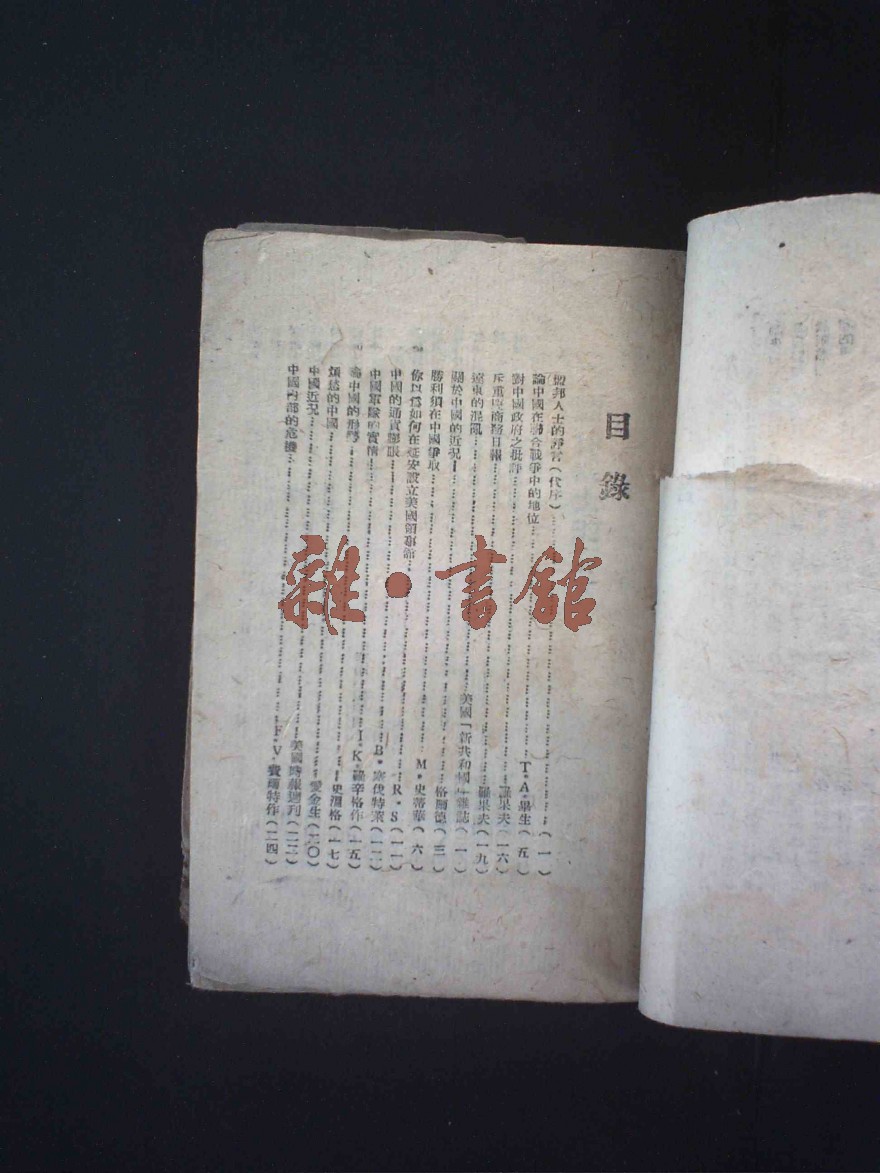 目錄
盟邦人士的諍言(代序)……(一)
論中國在聯合戰爭中的地位……T·A·畢生(五)
對中國政府之批評……羅果夫(一六)
斥重慶商務日報……羅果夫(一九)
遠東的混亂……美國「新共和國」雜誌(一)
關於中國的近況……格爾德(三)
勝利須在中國爭取……M·史蒂華(六)
你以爲如何在延安設立美國領事館……R·S(一一)
中國的通貨膨脹……B·(一二)
中國軍隊的實情……I·K·羅辛格作(一五)
論中國的形勢……史沮格(一七)
煩愁的中國……愛金生(二〇)
中國近況……美國時報週刊(二二)
中國內部的危機……F·V·費爾特作(二四)
雜·書館